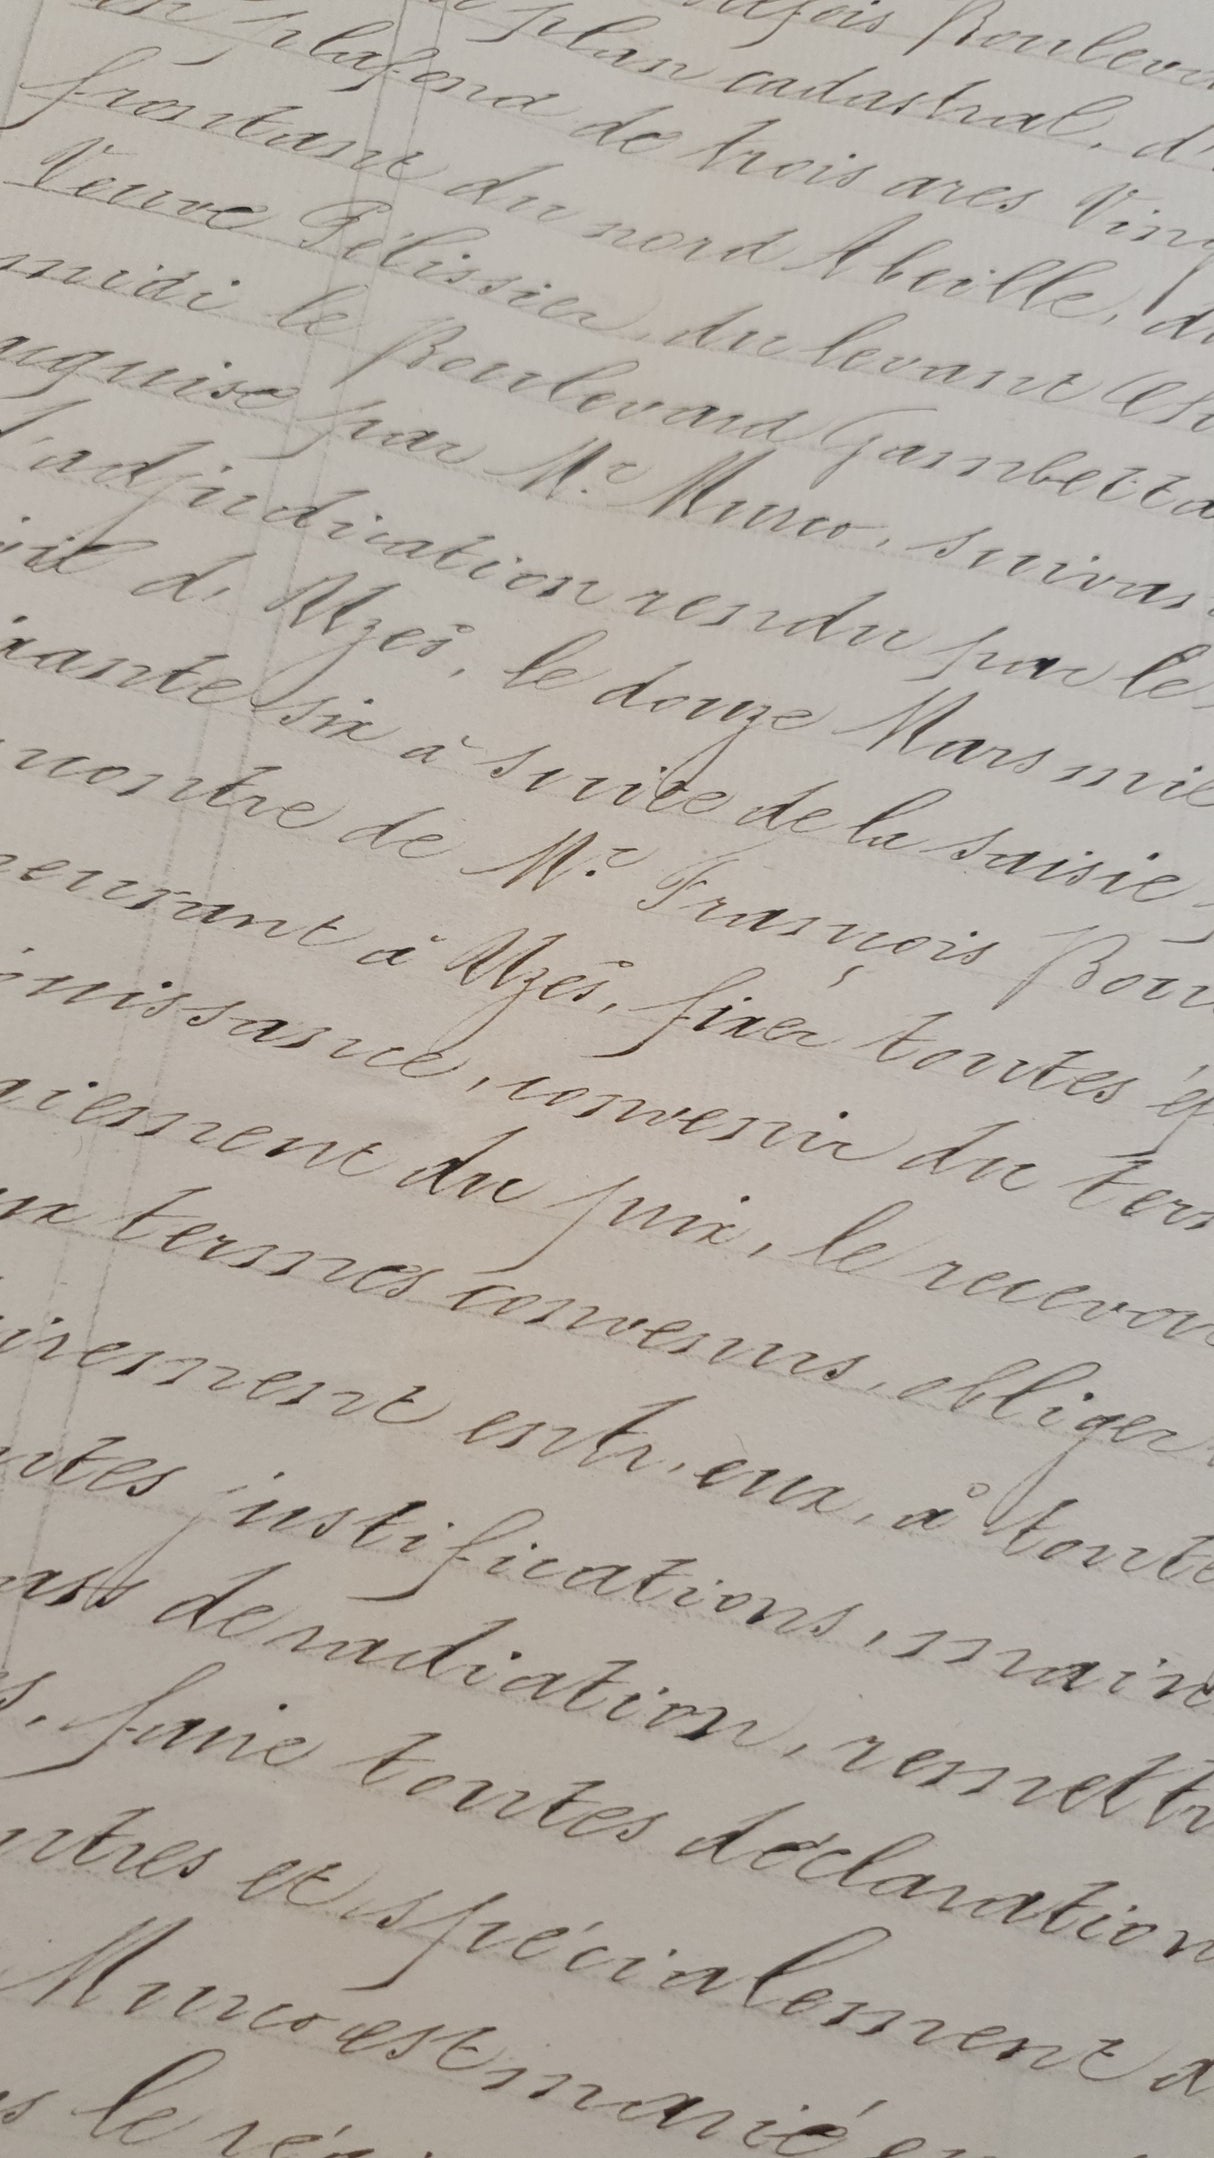 efois Boulevar
plan cadastral, d'
on plafond de trois ares Ving
frontant du nord Abeille, du
Veuve Pélissier, du levant
midi le Boulevard Gambetta
cquise par Mr. Murco, suivan
d'adjudication rendu par le
vil d'Uzès, le douze Mars mil
ixante six à suite de la saisie
ncontre de Mr. François Bou
meurant à Uzès, fixer toutes é
ouissance, convenir du ter
aiement du prix, le recevoi
ux termes convenus, obliger
irement entr'eux, à toute
utes justifications, main
ass de radiation, remettr
s, faire toutes déclaration
utres et spécialement
Murco est marié
s le ré